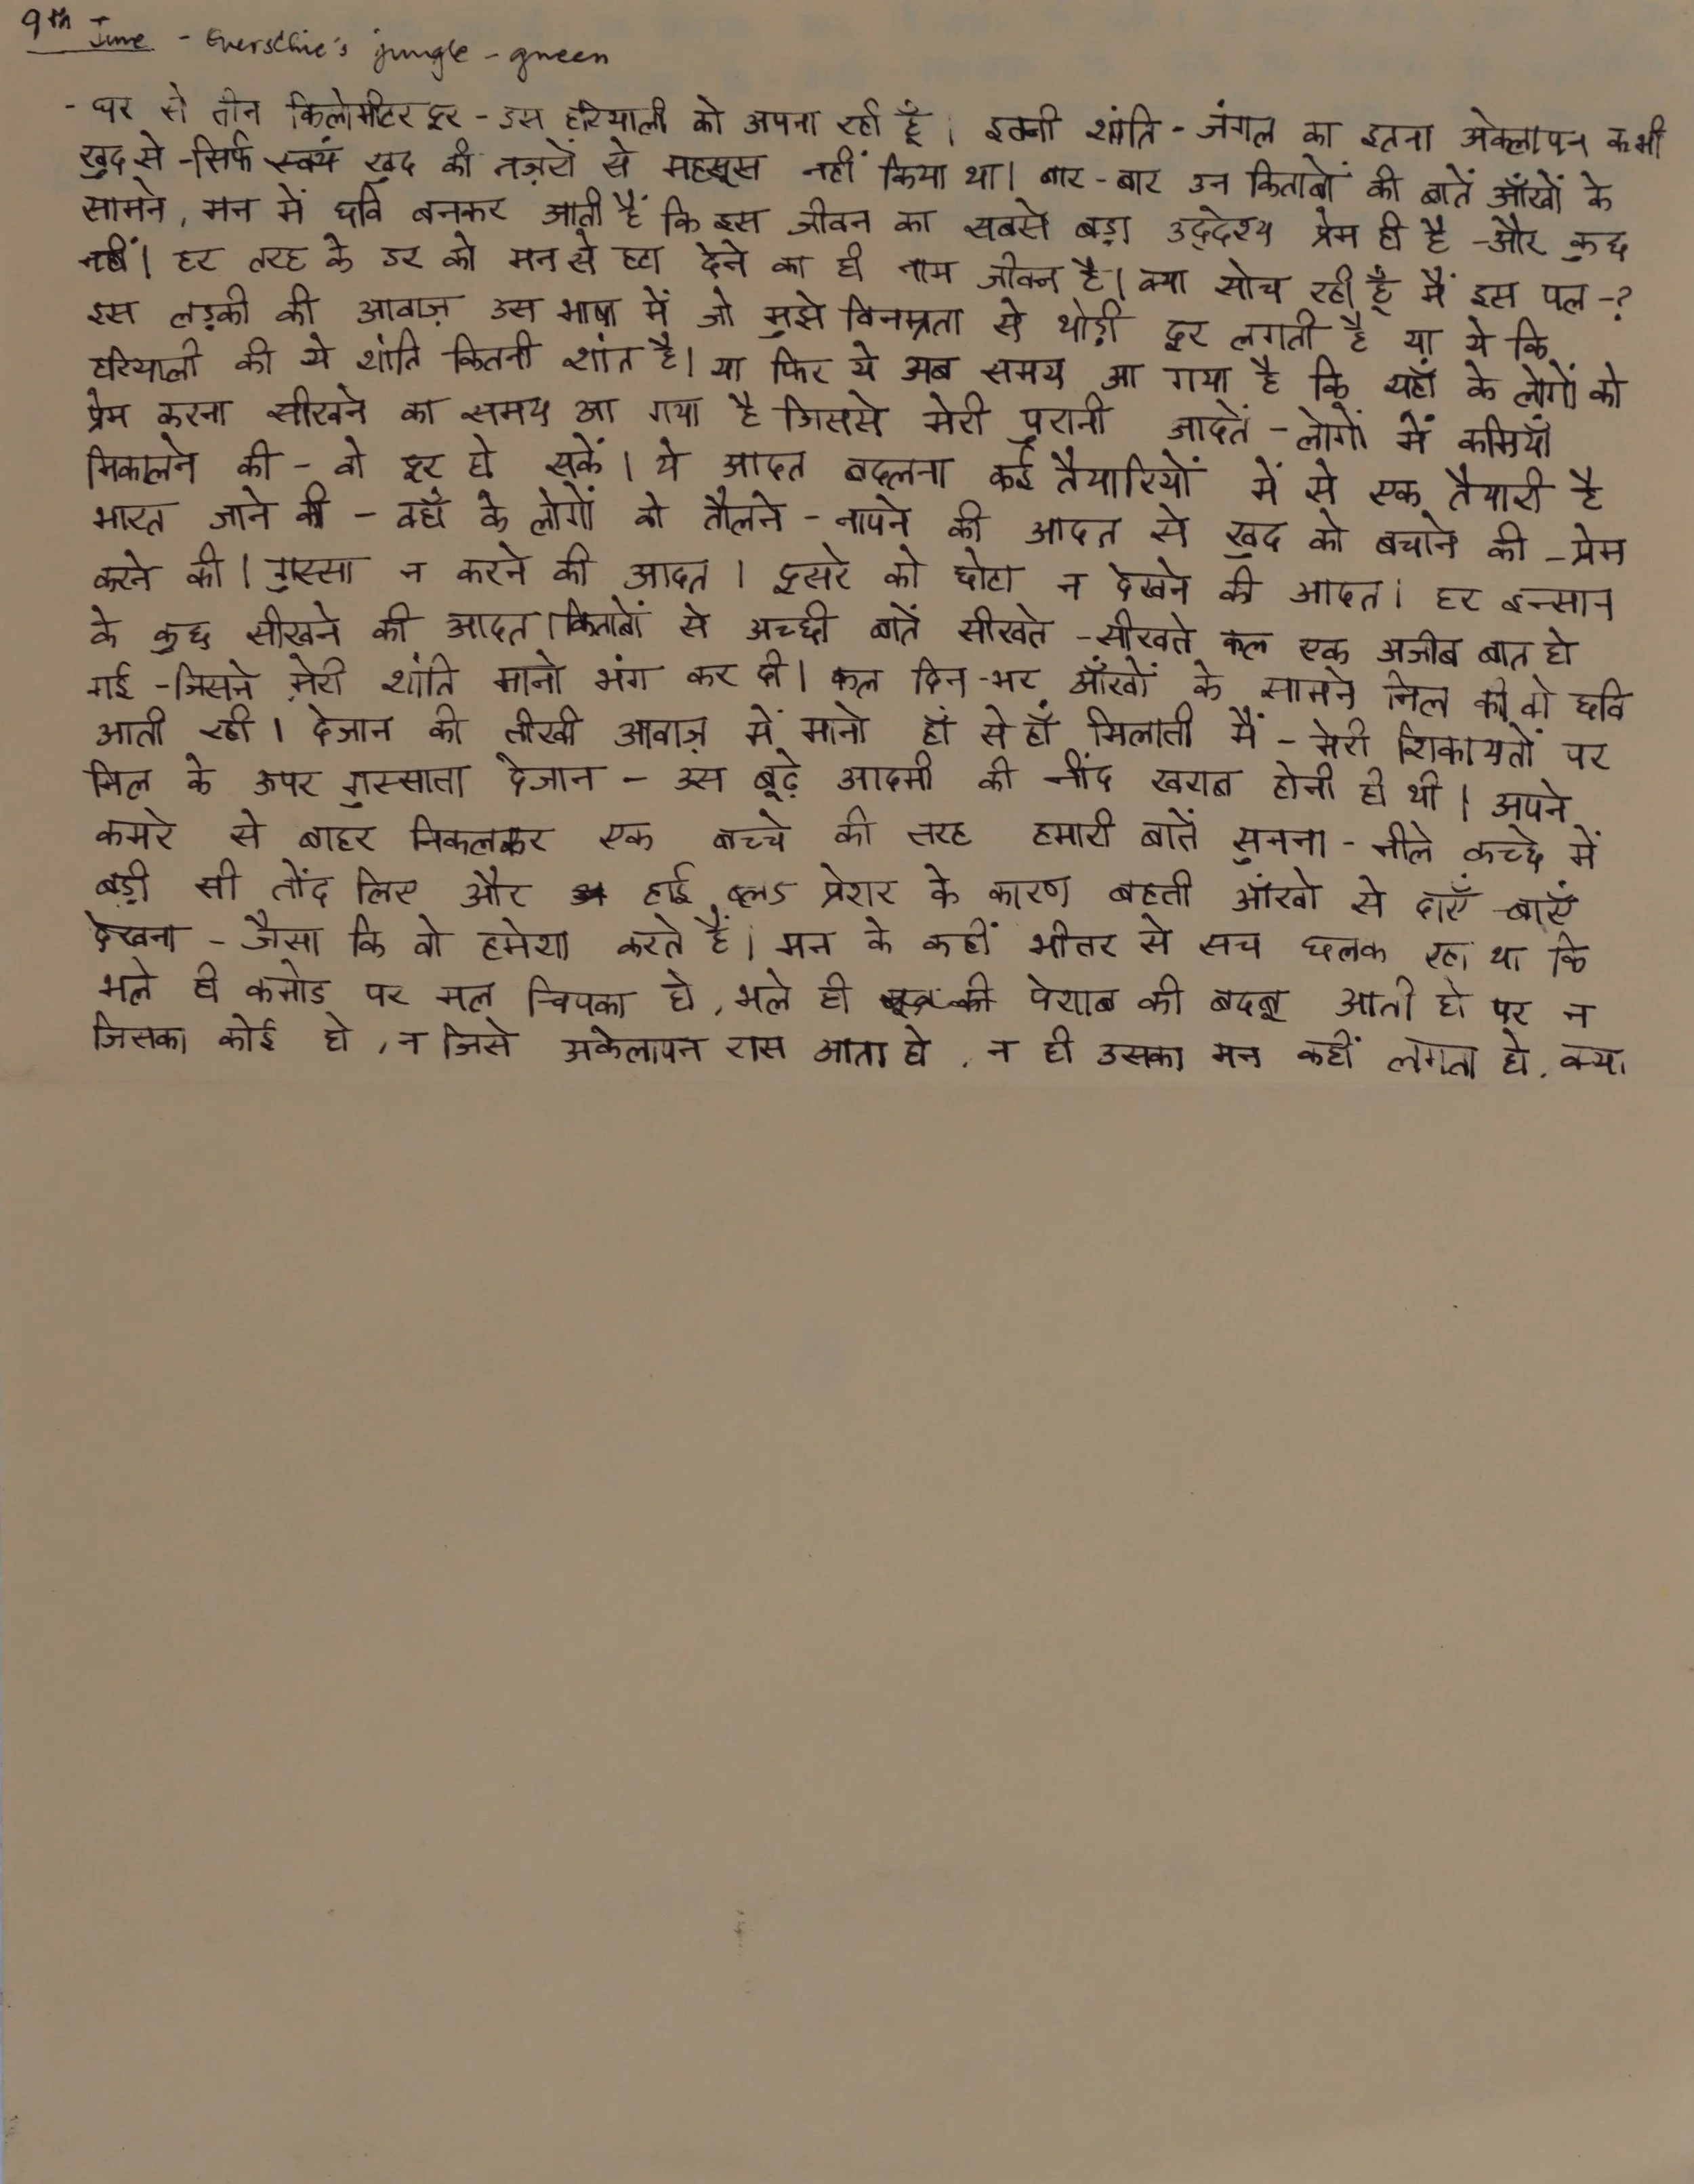 9th June - Everschie's jungle - green
- घर से तीन किलोमीटर दूर - इस हरियाली को अपना रही हूँ। इतनी शांति - जंगल का इतना अकेलापन कभी
खुद से - सिर्फ स्वयं खुद की नज़रों से महसूस नहीं किया था। बार - बार उन किताबों की बातें आँखों के
सामने, मन में छवि बनकर आती हैं कि इस जीवन का सबसे बड़ा उद्देश्य प्रेम ही है - और कुछ
नहीं। हर तरह के डर को मन से हटा देने का ही नाम जीवन है। क्या सोच रही हूँ मैं इस पल - ?
इस लड़की की आवाज़ उस भाषा में जो मुझे विनम्रता से थोड़ी दूर लगती है या ये कि
हरियाली की ये शांति कितनी शांत है। या फिर ये अब समय आ गया है कि यहाँ के लोगों को
प्रेम करना सीखने का समय आ गया है जिससे मेरी पुरानी आदतें - लोगों में कमियाँ
निकालने की - वो दूर हो सकें। ये आदत बदलना कई तैयारियों में से एक तैयारी है
भारत जाने की - वहाँ के लोगों को तौलने - नापने की आदत से खुद को बचाने की - प्रेम
करने की। गुस्सा न करने की आदत। दूसरे को छोटा न देखने की आदत। हर इन्सान
के कुछ सीखने की आदत। किताबों से अच्छी बातें सीखते - सीखते कल एक अजीब बात हो
गई - जिसने मेरी शांति मानो भंग कर दी। कल दिन - भर आँखों के सामने निल की वो छवि
आती रही। देजान की तीखी आवाज़ में मानो हाँ से हाँ मिलाती मैं - मेरी शिकायतों पर
निल के ऊपर गुस्साता देजान - उस बूढ़े आदमी की नींद खराब होनी ही थी। अपने
कमरे से बाहर निकलकर एक बच्चे की तरह हमारी बातें सुनना - नीले कच्छे में
बड़ी सी तोंद लिए और हाई ब्लड प्रेशर के कारण बहती आँखो से दाएँ - बाएँ
देखना - जैसा कि वो हमेशा करते हैं। मन के कहीं भीतर से सच छलक रहा था कि
भले ही कमोड पर मल चिपका हो, भले ही पेशाब की बदबू आती हो पर न
जिसका कोई हो, न जिसे अकेलापन रास आता हो, न ही उसका मन कहीं लगता हो, क्या